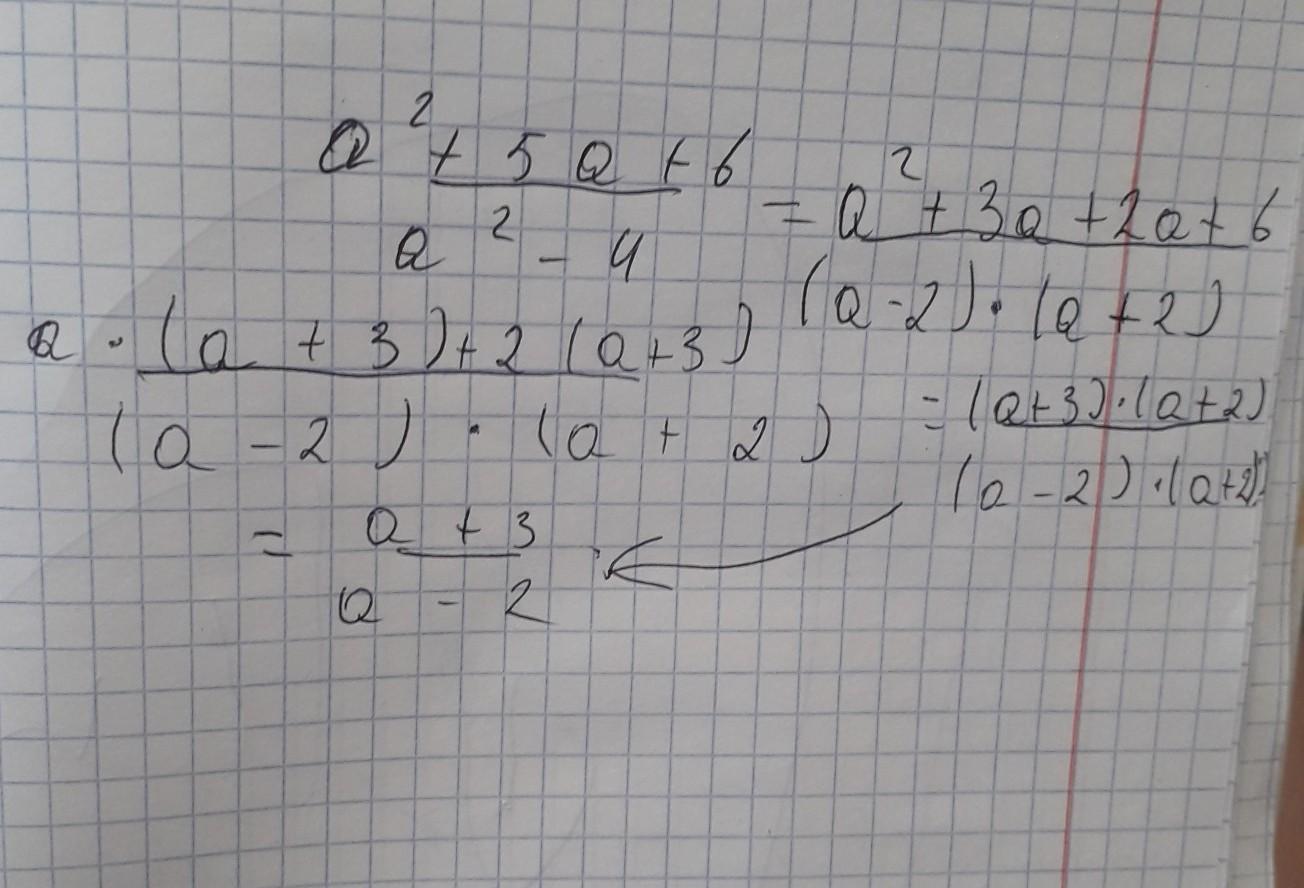 a² + 5a + 6 / a² - 4 = a² + 3a + 2a + 6 / (a-2)·(a+2)
a·(a + 3) + 2(a+3) / (a - 2)·(a + 2) = (a+3)·(a+2) / (a-2)·(a+2)
= a + 3 / a - 2